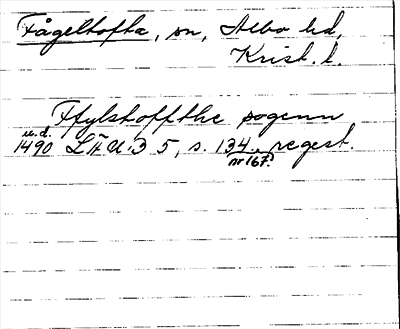 Fågeltofta, sn, Albo hd,
Krist. l.
Ffylshoffthe sogenn
u.d.
1490 LÄU:3 5, s. 134, regest.
nr 167.